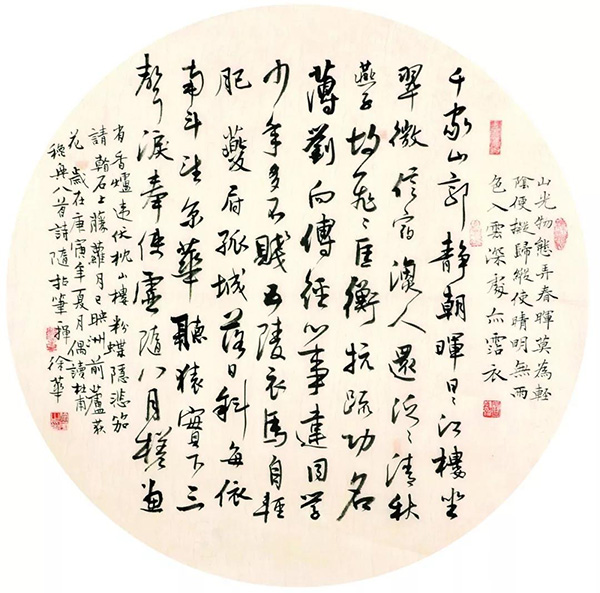 山光物態弄春暉莫為輕
陰便擬歸縱使晴明無雨
色入雲深處亦霑衣
千家山郭靜朝暉日々江樓坐
翠微信宿漁人還泛々清秋
燕子故飛々匡衡抗疏功名
薄劉向傳經心事違同學
少年多不賤五陵衣馬自輕
肥 夔府孤城落日斜每依
南斗望京華聽猿實下三
聲淚奉使虛隨八月槎畫
省香爐違伏枕山樓粉蝶隱悲笳
請看石上藤蘿月已映洲前蘆荻
花 歲在庚寅年夏月偶讀杜甫
秋興八首詩隨拈筆揮 徐華